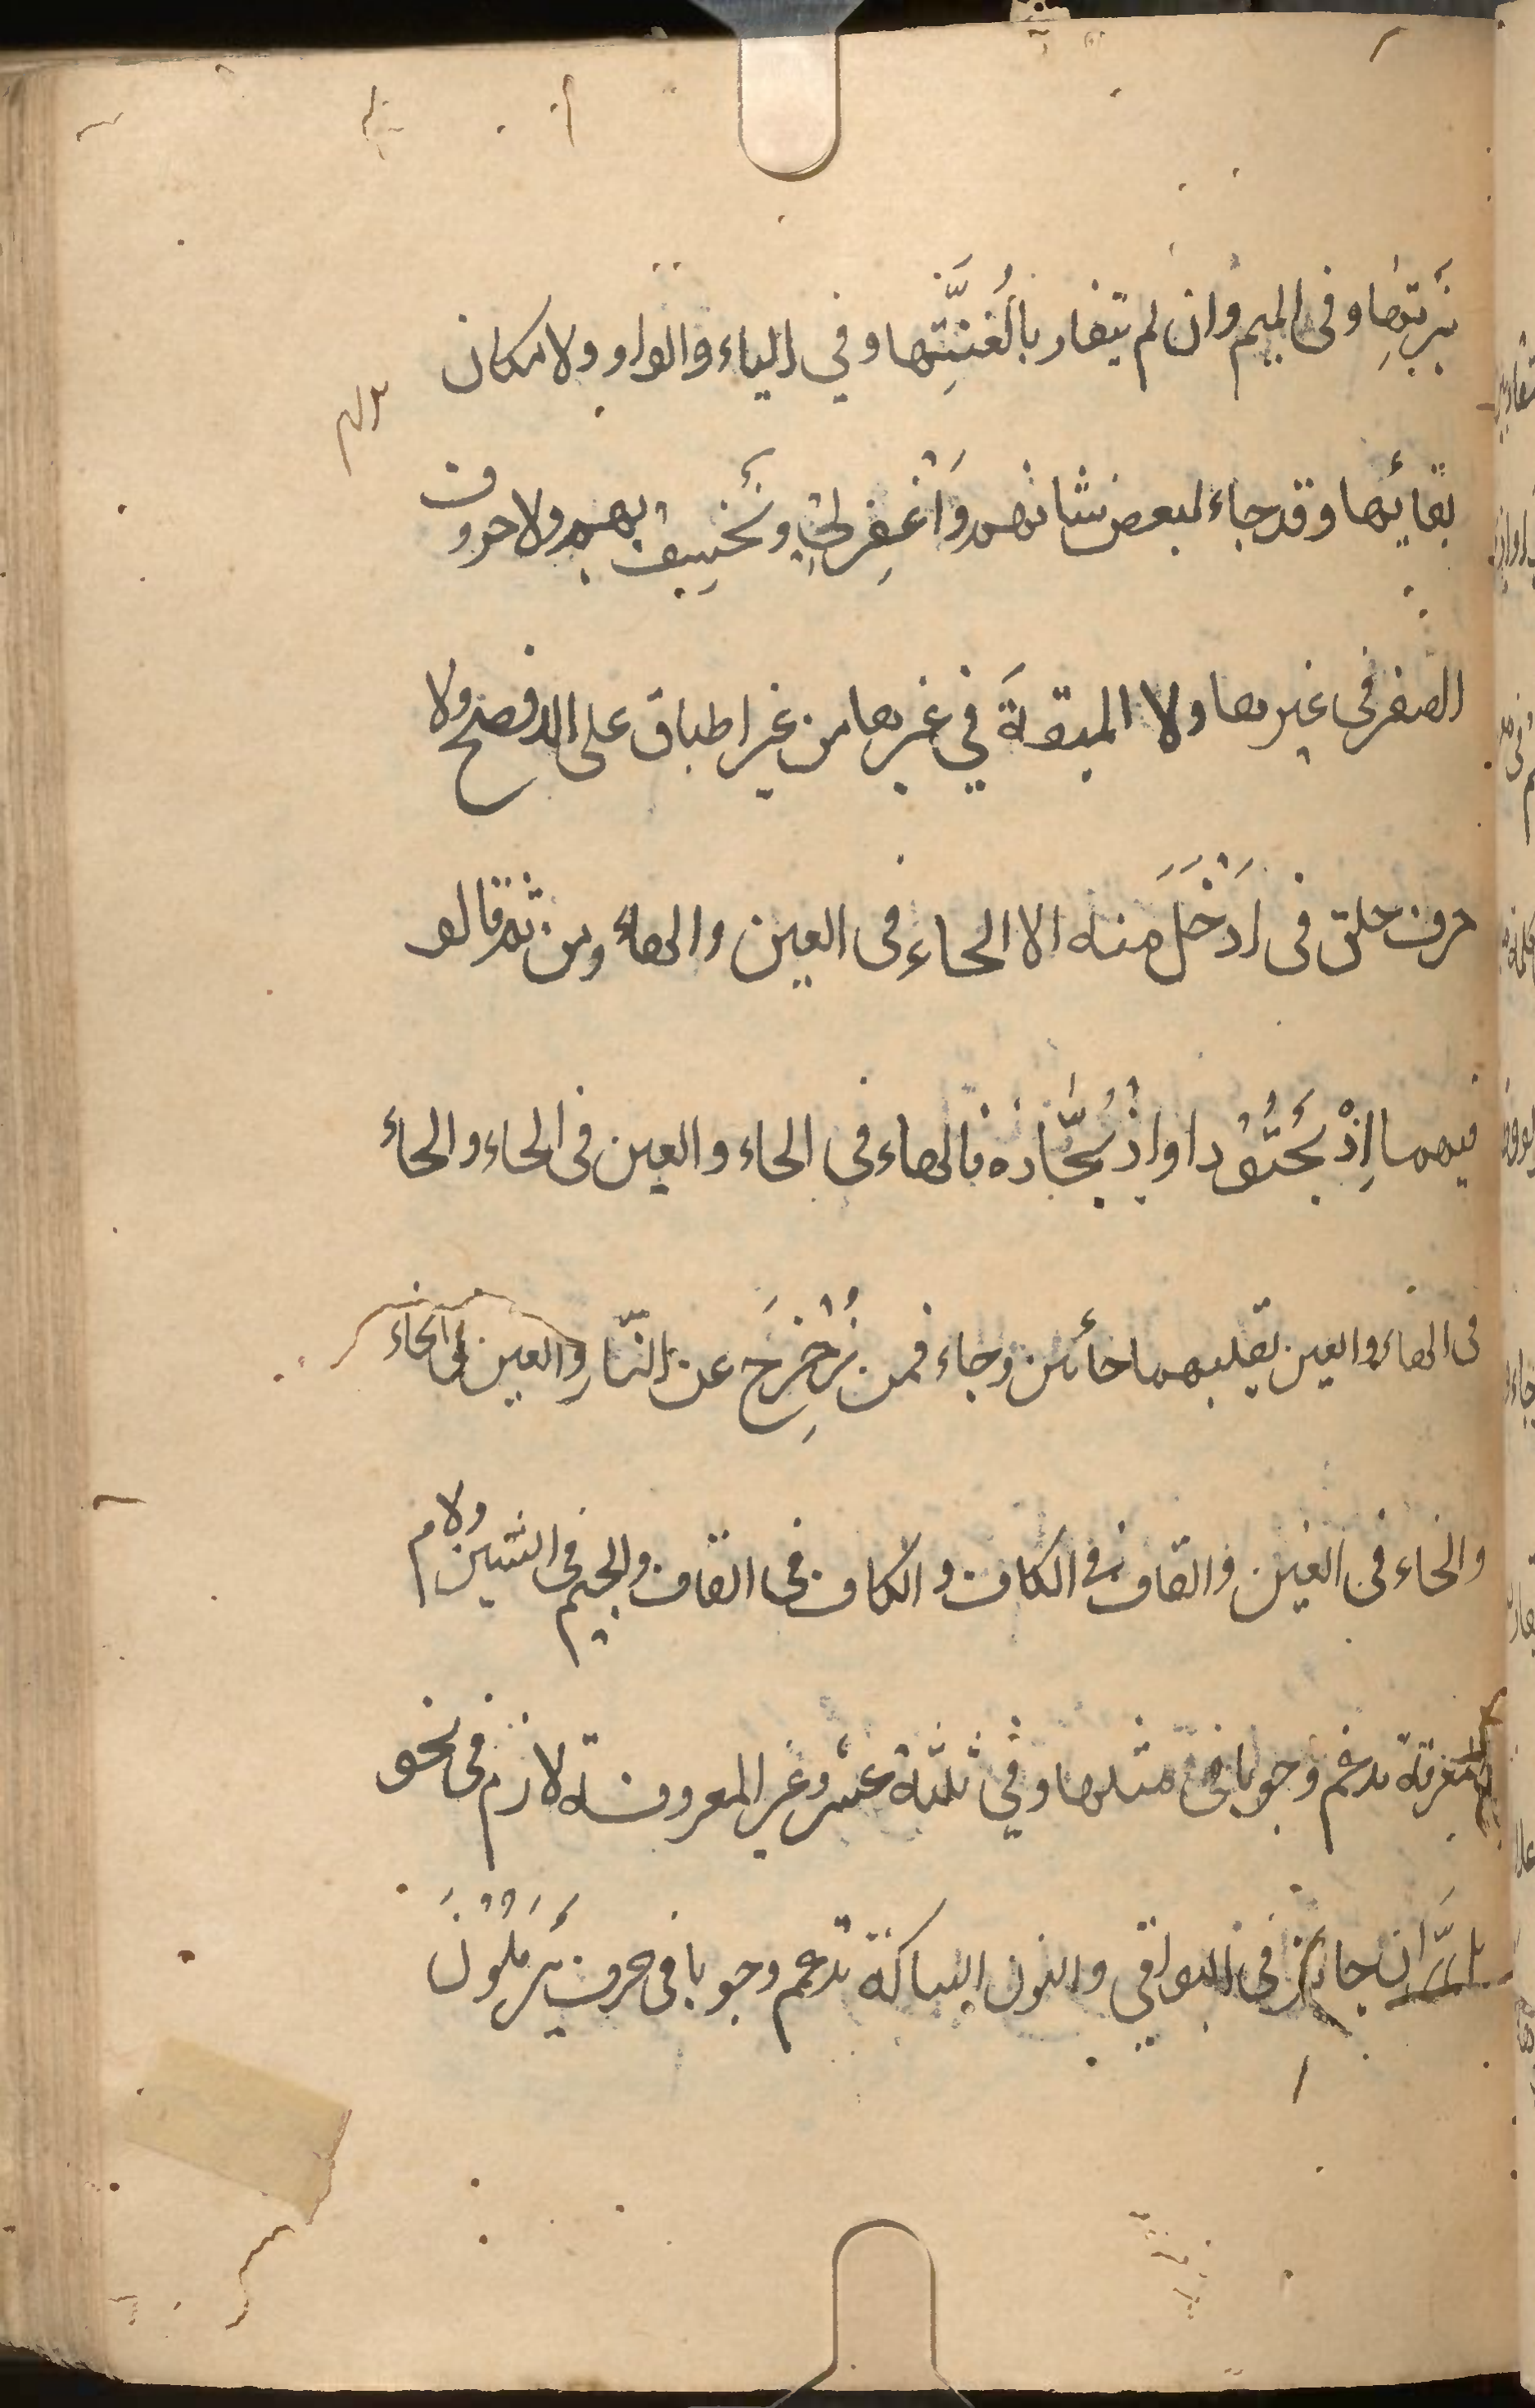 نَبرتِها وفى الميم وان لم يتقاربا لغُنَّتِها وفي الياء والواو ولامكان
بقائها وقد جاء لبعض شانهم وَاغْفِرلى ونَخْسِف بهم ولا حروف
الصفر فى غيرها ولا المبقة فَي غيرها من غير اطباق على الافصح ولا
حرف حلق فى اَدْخَلَ منه الا الحاء فى العين والهاء ومن ثم قالو
فيهما اِذْبَحَّتُوداواِذْبَحَّاذه فالهاء فى الحاء والعين فى الحاء والحاء
فى الهاء والعين بقلبهما حائين وجاء فمن زُحْزِحَ عن النّارِ والعين فى الحاء
والخاء فى الغين والقاف فى الكاف والكاف فى القاف والجيم فى الشين ولام
المعرفة تدغم وجوبا فى مثلها وفي ثلثة عشر وغير المعروفة لازم فى نحو
بل رَّان جائز فى البواقي والنون الساكنة تدغم وجوبا فى حرف يَرْمَلُونَ